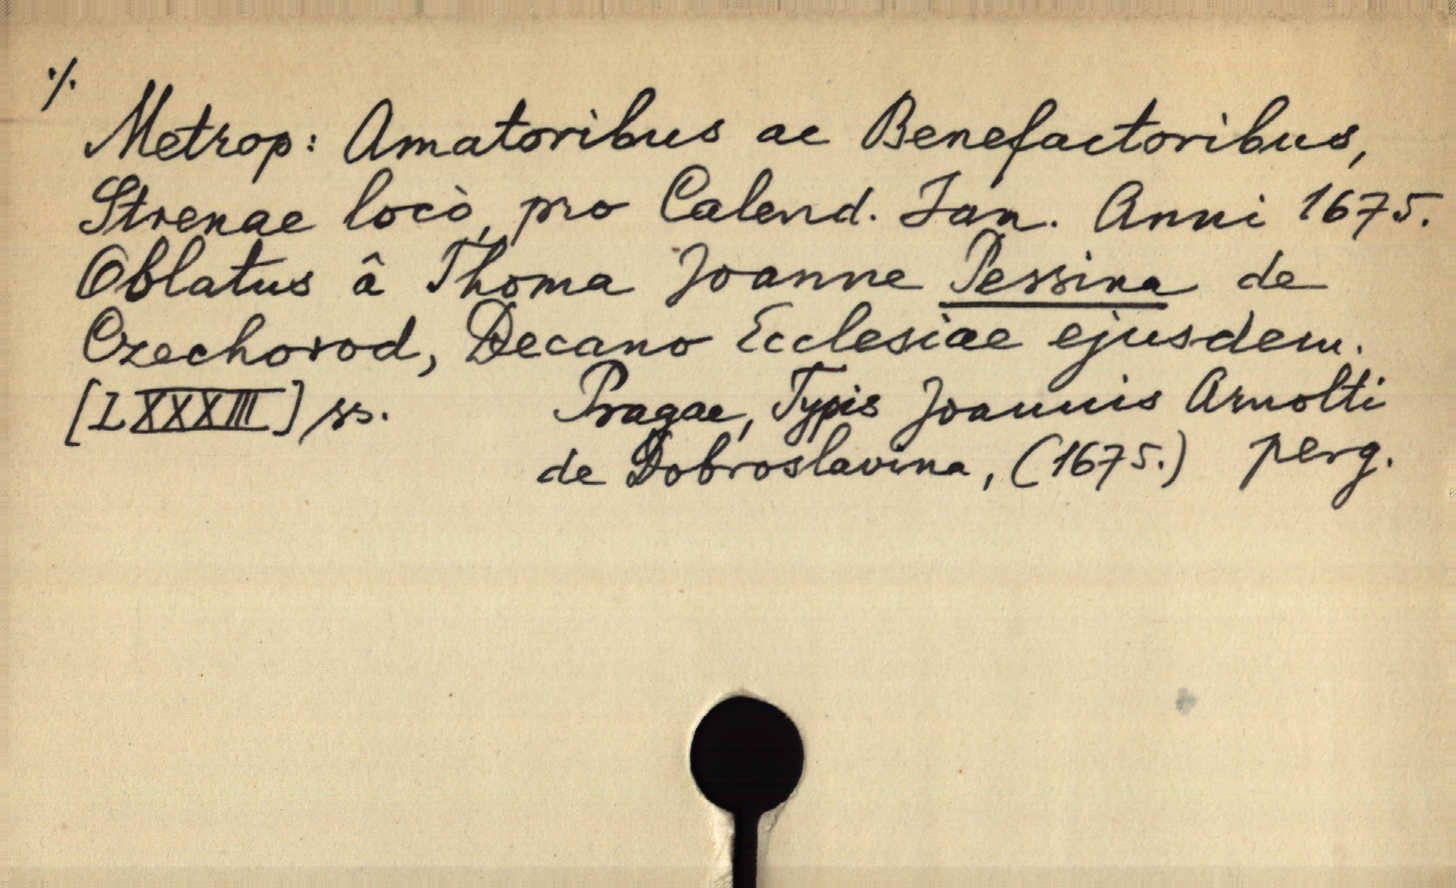 ./.
Metrop: Amatoribus ac Benefactoribus,
Strenae locò, pro Calend. Jan. Anni 1675.
Oblatus â Thoma Joanne Pessina de
Czechorod, Decano Ecclesiae ejusdem.
[LXXXIII] ss. Pragae, Typis Joannis Arnolti
de Dobroslavina, (1675.) perg.